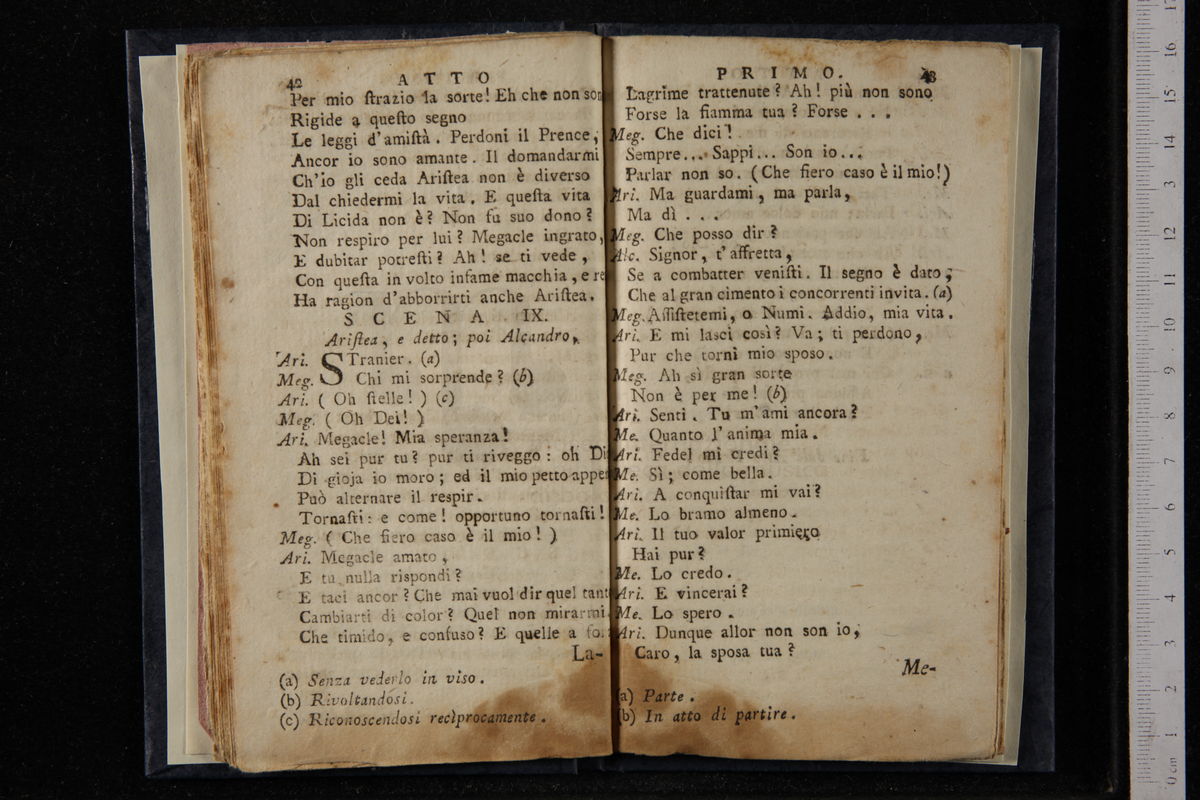 42 ATTO
Per mio ſtrazio la sorte! Eh che non son
Rigide a queſto segno
Le leggi d'amiſtà. Perdoni il Prence,
Ancor io sono amante. Il domandarmi
Ch'io gli ceda Ariſtea non è diverso
Dal chiedermi la vita. E queſta vita
Di Licida non è? Non fu suo dono?
Non respiro per lui? Megacle ingrato,
E dubitar potreſti? Ah! se ti vede,
Con queſta in volto infame macchia, e re
Ha ragion d'abborrirti anche Ariſtea.
SCENA IX.
Ariſtea, e detto; poi Alcandro,
Ari. STranier. (a)
Meg. Chi mi sorprende? (b)
Ari. ( Oh ſtelle! ) (c)
Meg. ( Oh Dei! )
Ari. Megacle! Mia speranza!
Ah sei pur tu? pur ti riveggo: oh Di
Di gioja io moro; ed il mio petto appe
Può alternare il respir.
Tornaſti: e come! opportuno tornaſti!
Meg. ( Che fiero caso è il mio! )
Ari. Megacle amato,
E tu nulla rispondi?
E taci ancor? Che mai vuol dir quel tant
Cambiarti di color? Quel non mirarmi
Che timido, e confuso? E quelle a fo
La-
(a) Senza vederlo in viso.
(b) Rivoltandosi.
(c) Riconoscendosi recìprocamente.
PRIMO. 43
Lagrime trattenute? Ah! più non sono
Forse la fiamma tua? Forse . . .
Meg. Che dici!
Sempre... Sappi... Son io...
Parlar non so. (Che fiero caso è il mio!)
Ari. Ma guardami, ma parla,
Ma dì . . .
Meg. Che posso dir?
Alc. Signor, t'affretta,
Se a combatter veniſti. Il segno è dato,
Che al gran cimento i concorrenti invita. (a)
Meg. Aſſiſtetemi, o Numi. Addio, mia vita.
Ari. E mi lasci così? Va; ti perdono,
Pur che torni mio sposo.
Meg. Ah sì gran sorte
Non è per me! (b)
Ari. Senti. Tu m'ami ancora?
Me. Quanto l'anima mia.
Ari. Fedel mi credi?
Me. Sì; come bella.
Ari. A conquiſtar mi vai?
Me. Lo bramo almeno.
Ari. Il tuo valor primiero
Hai pur?
Me. Lo credo.
Ari. E vincerai?
Me. Lo spero.
Ari. Dunque allor non son io,
Caro, la sposa tua?
Me-
(a) Parte.
(b) In atto di partire.